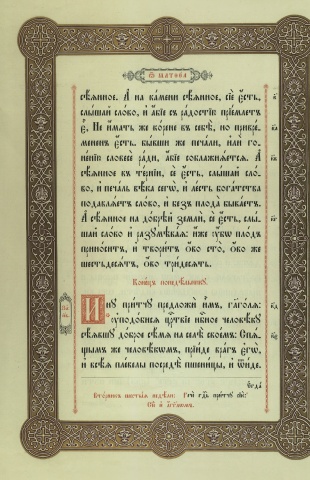 Ѿ МАТѲЕА
сѣ́янное. А на ка́мени сѣ́янное, сїѐ є҆́сть,
слы́шай сло́во, и҆ а҆́бїе съ ра́достїю прїе́млетъ
є҆̀. Не и҆́мать же ко́рене въ себѣ̀, но привре́-
мененъ є҆́сть. бы́вши же печа́ли, и҆лѝ го-
не́нїю словесѐ ра́ди, а҆́бїе соблажнѧ́етсѧ. А
сѣ́янное въ те́рнїи, сѐ є҆́сть, слы́шай сло́-
во, и҆ печа́ль вѣ́ка сегѡ̀, и҆ ле́сть бога́тства
подавлѧ́етъ сло́во, и҆ без̾ плода̀ быва́етъ.
А сѣ́янное на до́брѣй землѝ, сѐ є҆́сть, слы́-
шай сло́во и҆ разꙋмѣва́ѧ: и҆́же ᲂу҆́бѡ пло́дъ
прино́ситъ, и҆ твори́тъ ѻ҆́во сто̀, ѻ҆́во же
шестьдесѧ́тъ, ѻ҆́во три́десѧть.
Коне́цъ понедѣ́льникꙋ
И҆нꙋ при́тчꙋ предложѝ и҆̀мъ, гл҃го́лѧ:
ᲂу҆подо́бисѧ црⷭ҇твїе нбⷭ҇ное человѣ́кꙋ
сѣ́ѧвшꙋ до́брое сѣ́мѧ на селѣ̀ свое́мъ: Спѧ́-
щымъ же человѣ́кѡмъ, прїи́де вра́гъ є҆гѡ̀,
и҆ всѣ́ѧ пле́велы посредѣ̀ пшени́цы, и҆ ѿи́де.
Є҆гда̀
Вто́рникъ